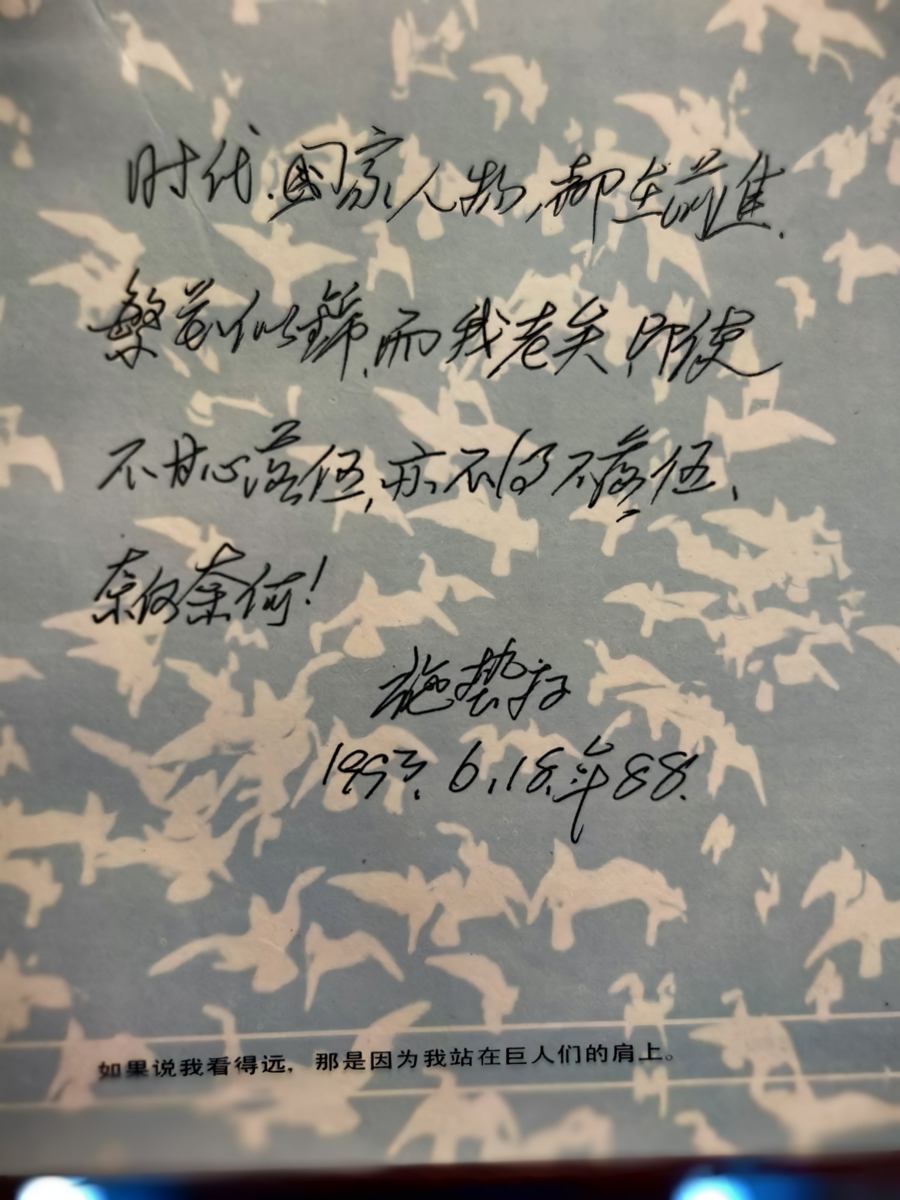 时代、国家、人物,都在前进.
繁花似锦,而我老矣 即使
不甘心落伍,亦不得不落伍、
奈何奈何!
施蛰存
1993.6.18.年88.
如果说我看得远，那是因为我站在巨人们的肩上。